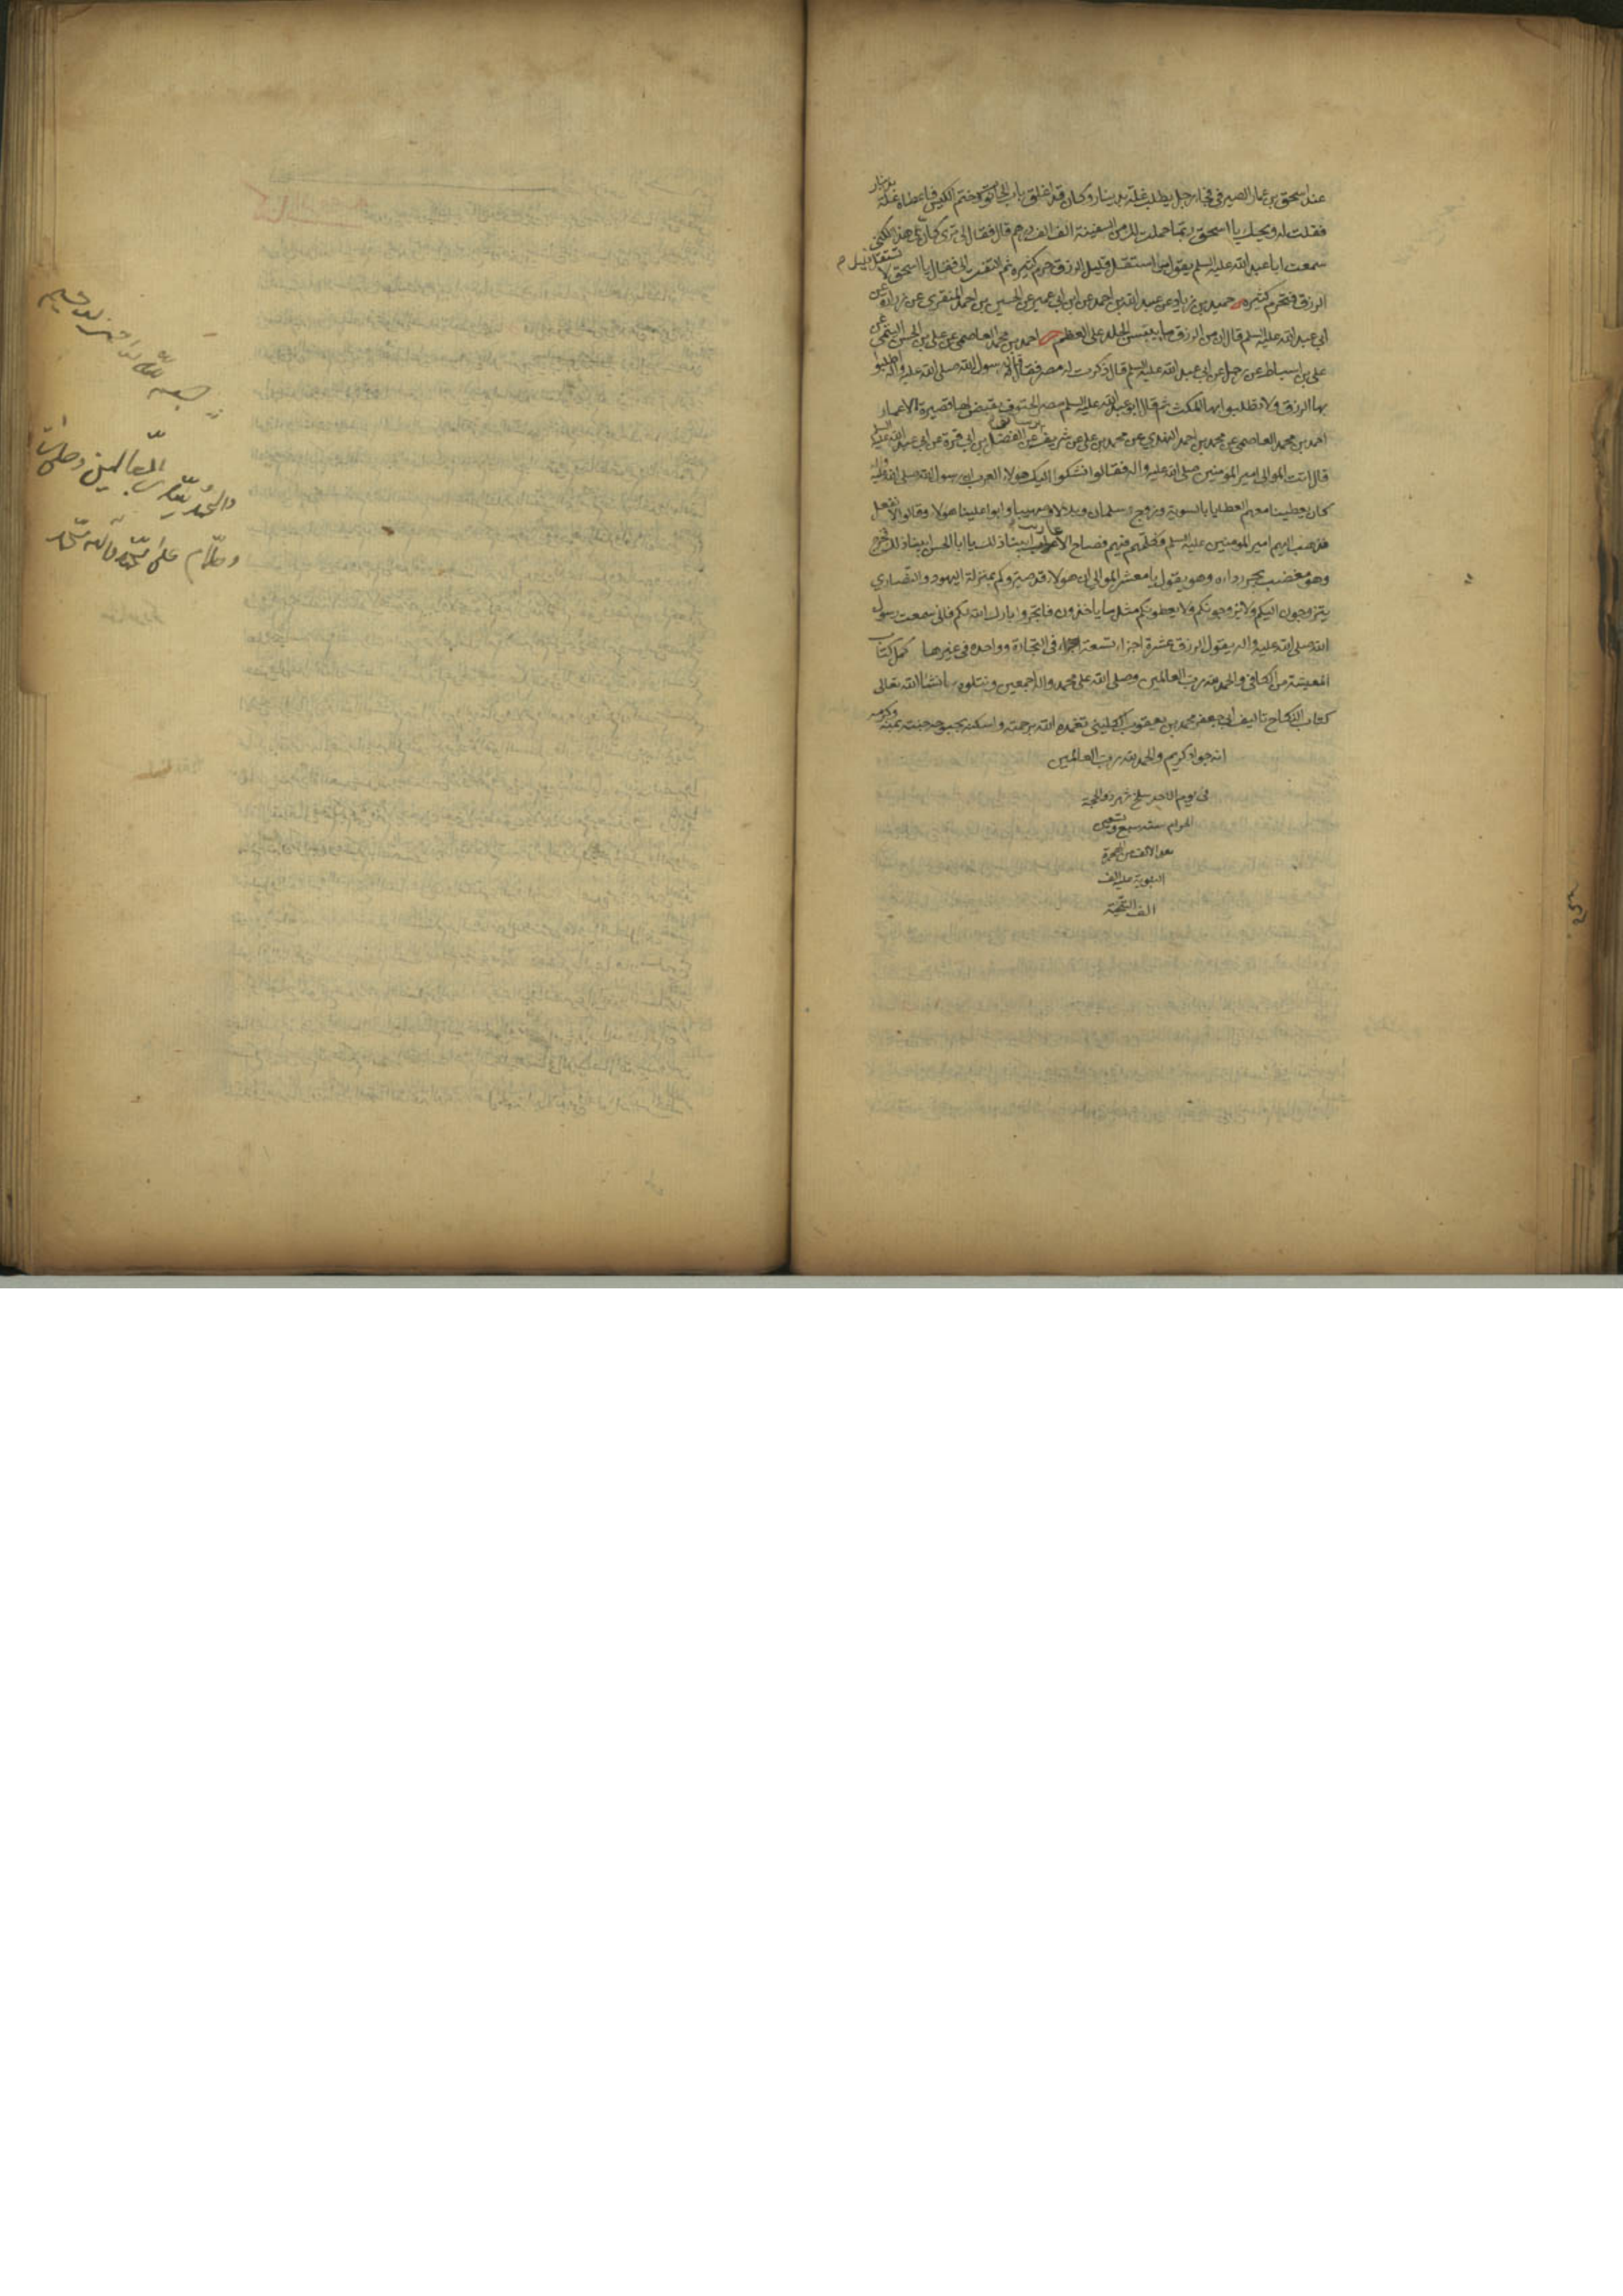 عند اسحق بن عمار الصيرفي فجاء رجل يطلب غلة بدينار وكان قد اغلق باب الحانوت وختم الكيس فاعطاه غلة بدينار
فقلت له ويحك يا اسحق ربما حملت لك من السفينة الف الف درهم قال فقال لي ترى كان بي هذا لكني
سمعت ابا عبد الله عليه السلم يقول من استقل قليل الرزق حرم كثيره ثم التفت الي فقال يا اسحق لا تستقل قليل
الرزق فتحرم كثيره حميد بن زياد عن عبيد الله بن احمد عن ابن ابي عمير عن الحسين بن احمد المنقري عن زرارة عن
ابي عبد الله عليه السلم قال ان من الرزق ما ييبس الجلد على العظم احمد بن محمد العاصمي عن علي بن الحسن التيمي عن
علي بن اسباط عن رجل عن ابي عبد الله عليه السلم قال ذكرت له مصر فقال قال رسول الله صلى الله عليه واله اطلبوا
بها الرزق ولا تطلبوا بها المكث ثم قال ابو عبد الله عليه السلم مصر الحتوف يقيض لها قصيرة الاعمار
احمد بن محمد العاصمي عن محمد بن احمد النهدي عن محمد بن علي عن شريف عن الفضل بن ابي قرة عن ابي عبد الله عليه السلم
قال اتت الموالي امير المؤمنين صلى الله عليه واله فقالوا نشكوا اليك هولاء العرب ان رسول الله صلى الله عليه واله
كان يعطينا معهم العطايا بالسوية وزوج سلمان وبلالا وصهيبا وابوا علينا هولاء وقالوا لا نفعل
فذهب اليهم امير المؤمنين عليه السلم فكلمهم فيهم فصاح الاعاريب ابينا ذلك يا ابا الحسن ابينا ذلك فخرج
وهو مغضب يجر رداءه وهو يقول يا معشر الموالي ان هولاء قد صيروكم بمنزلة اليهود والنصارى
يتزوجون اليكم ولا يزوجونكم ولا يعطونكم مثل ما ياخذون فاتجروا بارك الله لكم فاني سمعت رسول
الله صلى الله عليه واله يقول الرزق عشرة اجزاء تسعة اجزاء في التجارة وواحدة في غيرها كمل كتاب
المعيشة من الكافي والحمد لله رب العالمين وصلى الله على محمد واله اجمعين ونتلوه بانشاالله تعالى
كتاب النكاح تاليف ابي جعفر محمد بن يعقوب الكليني تغمده الله برحمته واسكنه بحبوحة جنته بمنه وكرمه
انه جواد كريم والحمد لله رب العالمين
في يوم الاحد سلخ شهر ذو الحجة
الحرام سنة سبع وتسعين
بعد الالف من الهجرة
النبوية عليه الف
الف التحية
بسم الله الرحمن الرحيم
والحمد لله رب العالمين وصلى الله
وسلم على محمد وآله محمد